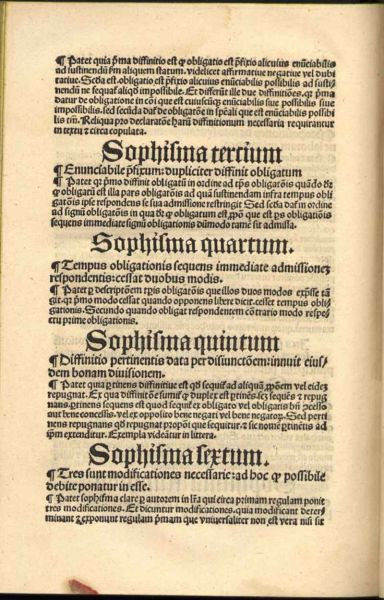 ¶ Patet quia p̄ma diffinitio est ꝙ obligatio est p̄fixio alicuius enūciabilis
ad sustinendū fm aliquem statum. videlicet affirmatiue negatiue vel dubi
tatiue. Scd̄a est. obligatio est p̄fixio alicuius enūciabilis possibilis ad susti
nendū ne sequaf aliqd̄ impossibile. Et differūt ille due diffinitiōes. ꝙ p̄ma
datur de obligatione in cōi que est cuiuscūqꝫ enūciabilis siue possibilis siue
impossibilis. sed secūda daf de obligatōe in sp̄eāli que est enūciabilis possibi
lis tm̄. Reliqua pro declaratōe harū diffinitionum necessaria requirantur
in textu ⁊ circa copulata.
Sophisma tertium
¶ Enunciabile p̄fixum: dupliciter diffinit obligatum
¶ Patet qꝛ p̄mo diffinit obligatū in ordine ad tp̄s obligatōis quādo dr̄
ꝙ obligatū est illa pars obligatōis ad quā sustinendam infra tempus obli
gatōis ipse respondens se sua admissione restringit Sed scd̄a daf in ordine
ad signū obligatōis in qua dr̄ ꝙ obligatum est ꝓpō que est ps̄ obligatiōis
sequens immediate signū obligationis dūmodo tame sit admissa.
Sophisma quartum.
¶ Tempus obligationis sequens immediate admissionez
respondentis: cessat duobus modis.
¶ Patet ꝑ descriptōem tp̄is obligatōis que illos duos modos exp̄sse tā
git. qꝛ p̄mo modo cessat quando opponens libere dicit. cesset tempus obli
gationis. Secundo quando obligat respondentem cōtrario modo respe
ctu prime obligationis.
Sophisma quintum
¶ Diffinitio pertinentis data per disiunctōem: innuit eius/
dem bonam diuisionem.
¶ Patet quia ꝑtinens diffinitiue est qd̄ sequif ad aliquā ꝓpōem vel eidez
repugnat. Ex qua diffinitōe sumif ꝙ duplex est ꝑtinēs. scz sequēs ⁊ repug
nans ꝑtinens sequens est quod sequif ex obligato vel obligatis
aut bene concessis. vel ex opposito bene negati vel bene negatoꝝ. Sed perti
nens repugnans qd̄ repugnat ꝓpōni que sequitur. ⁊ sic nome ꝑtinētis ad
ip̄m extenditur. Exempla videātur in littera.
Sophisma sextum.
¶ Tres sunt modificationes necessarie: ad hoc ꝙ possibile
debite ponatur in esse.
¶ Patet sophisma clare ꝑ autorem in lr̄a qui circa primam regulam ponit
tres modificationes. Et dicuntur modificationes. quia modificant deter/
minant ⁊ exponunt regulam p̄mam que vniuersaliter non est vera nisi sit